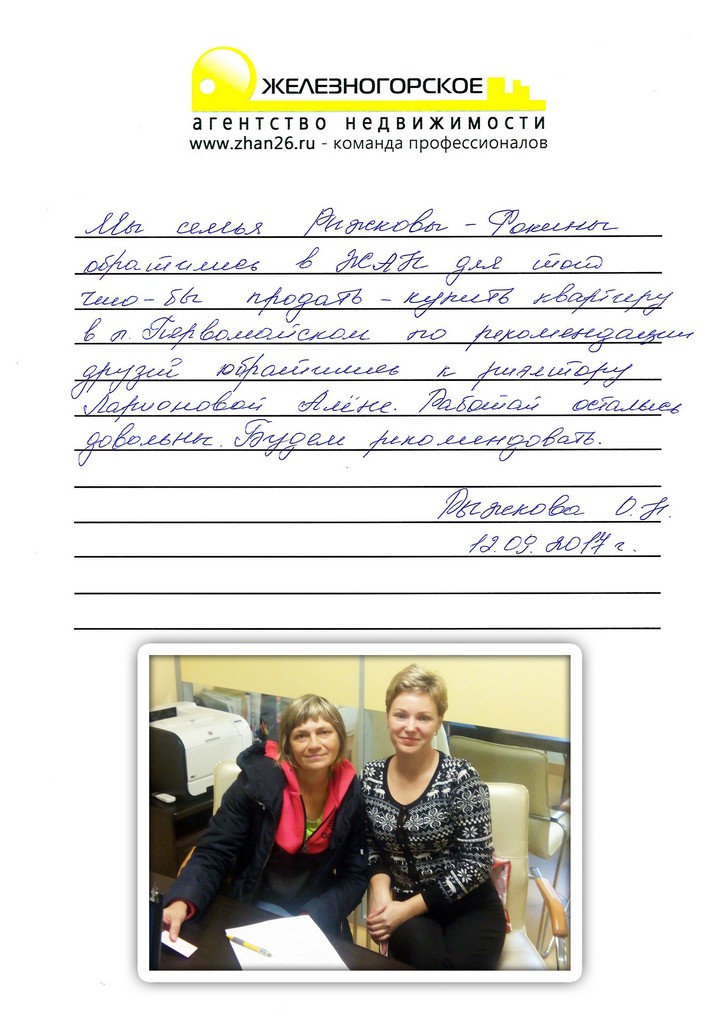 ЖЕЛЕЗНОГОРСКОЕ
агентство недвижимости
www.zhan26.ru - команда профессионалов
Мы семья Рыжковы - Фокины
обратились в ЖАН для того
что-бы продать - купить квартиру
в п. Первомайском по рекомендации
друзей обратились к риэлтору
Ларионовой Алёне. Работай остались
довольны. Будем рекомендовать.
Рыжкова О.Н.
12.09.2017 г.